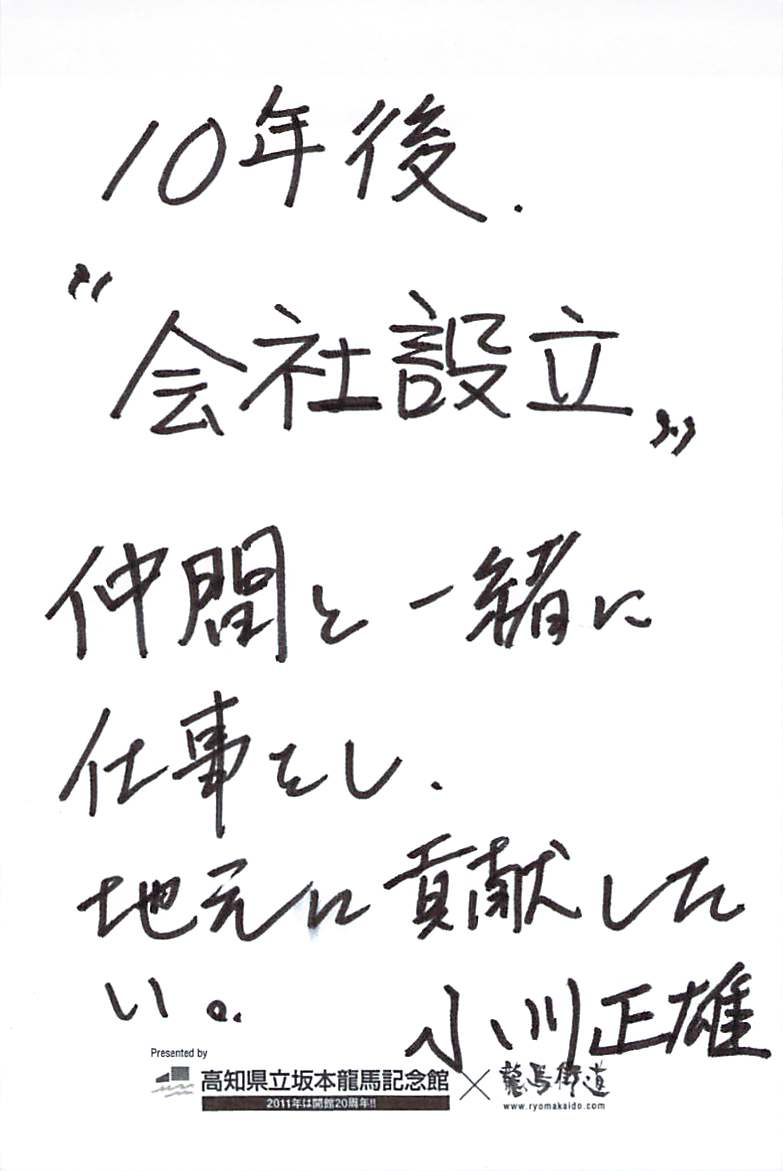 10年後.
"会社設立"
仲間と一緒に
仕事をし.
地元に貢献した
い。
小川正雄
Presented by
高知県立坂本龍馬記念館×龍馬街道
2011年は開館20周年!!
www.ryomakaido.com